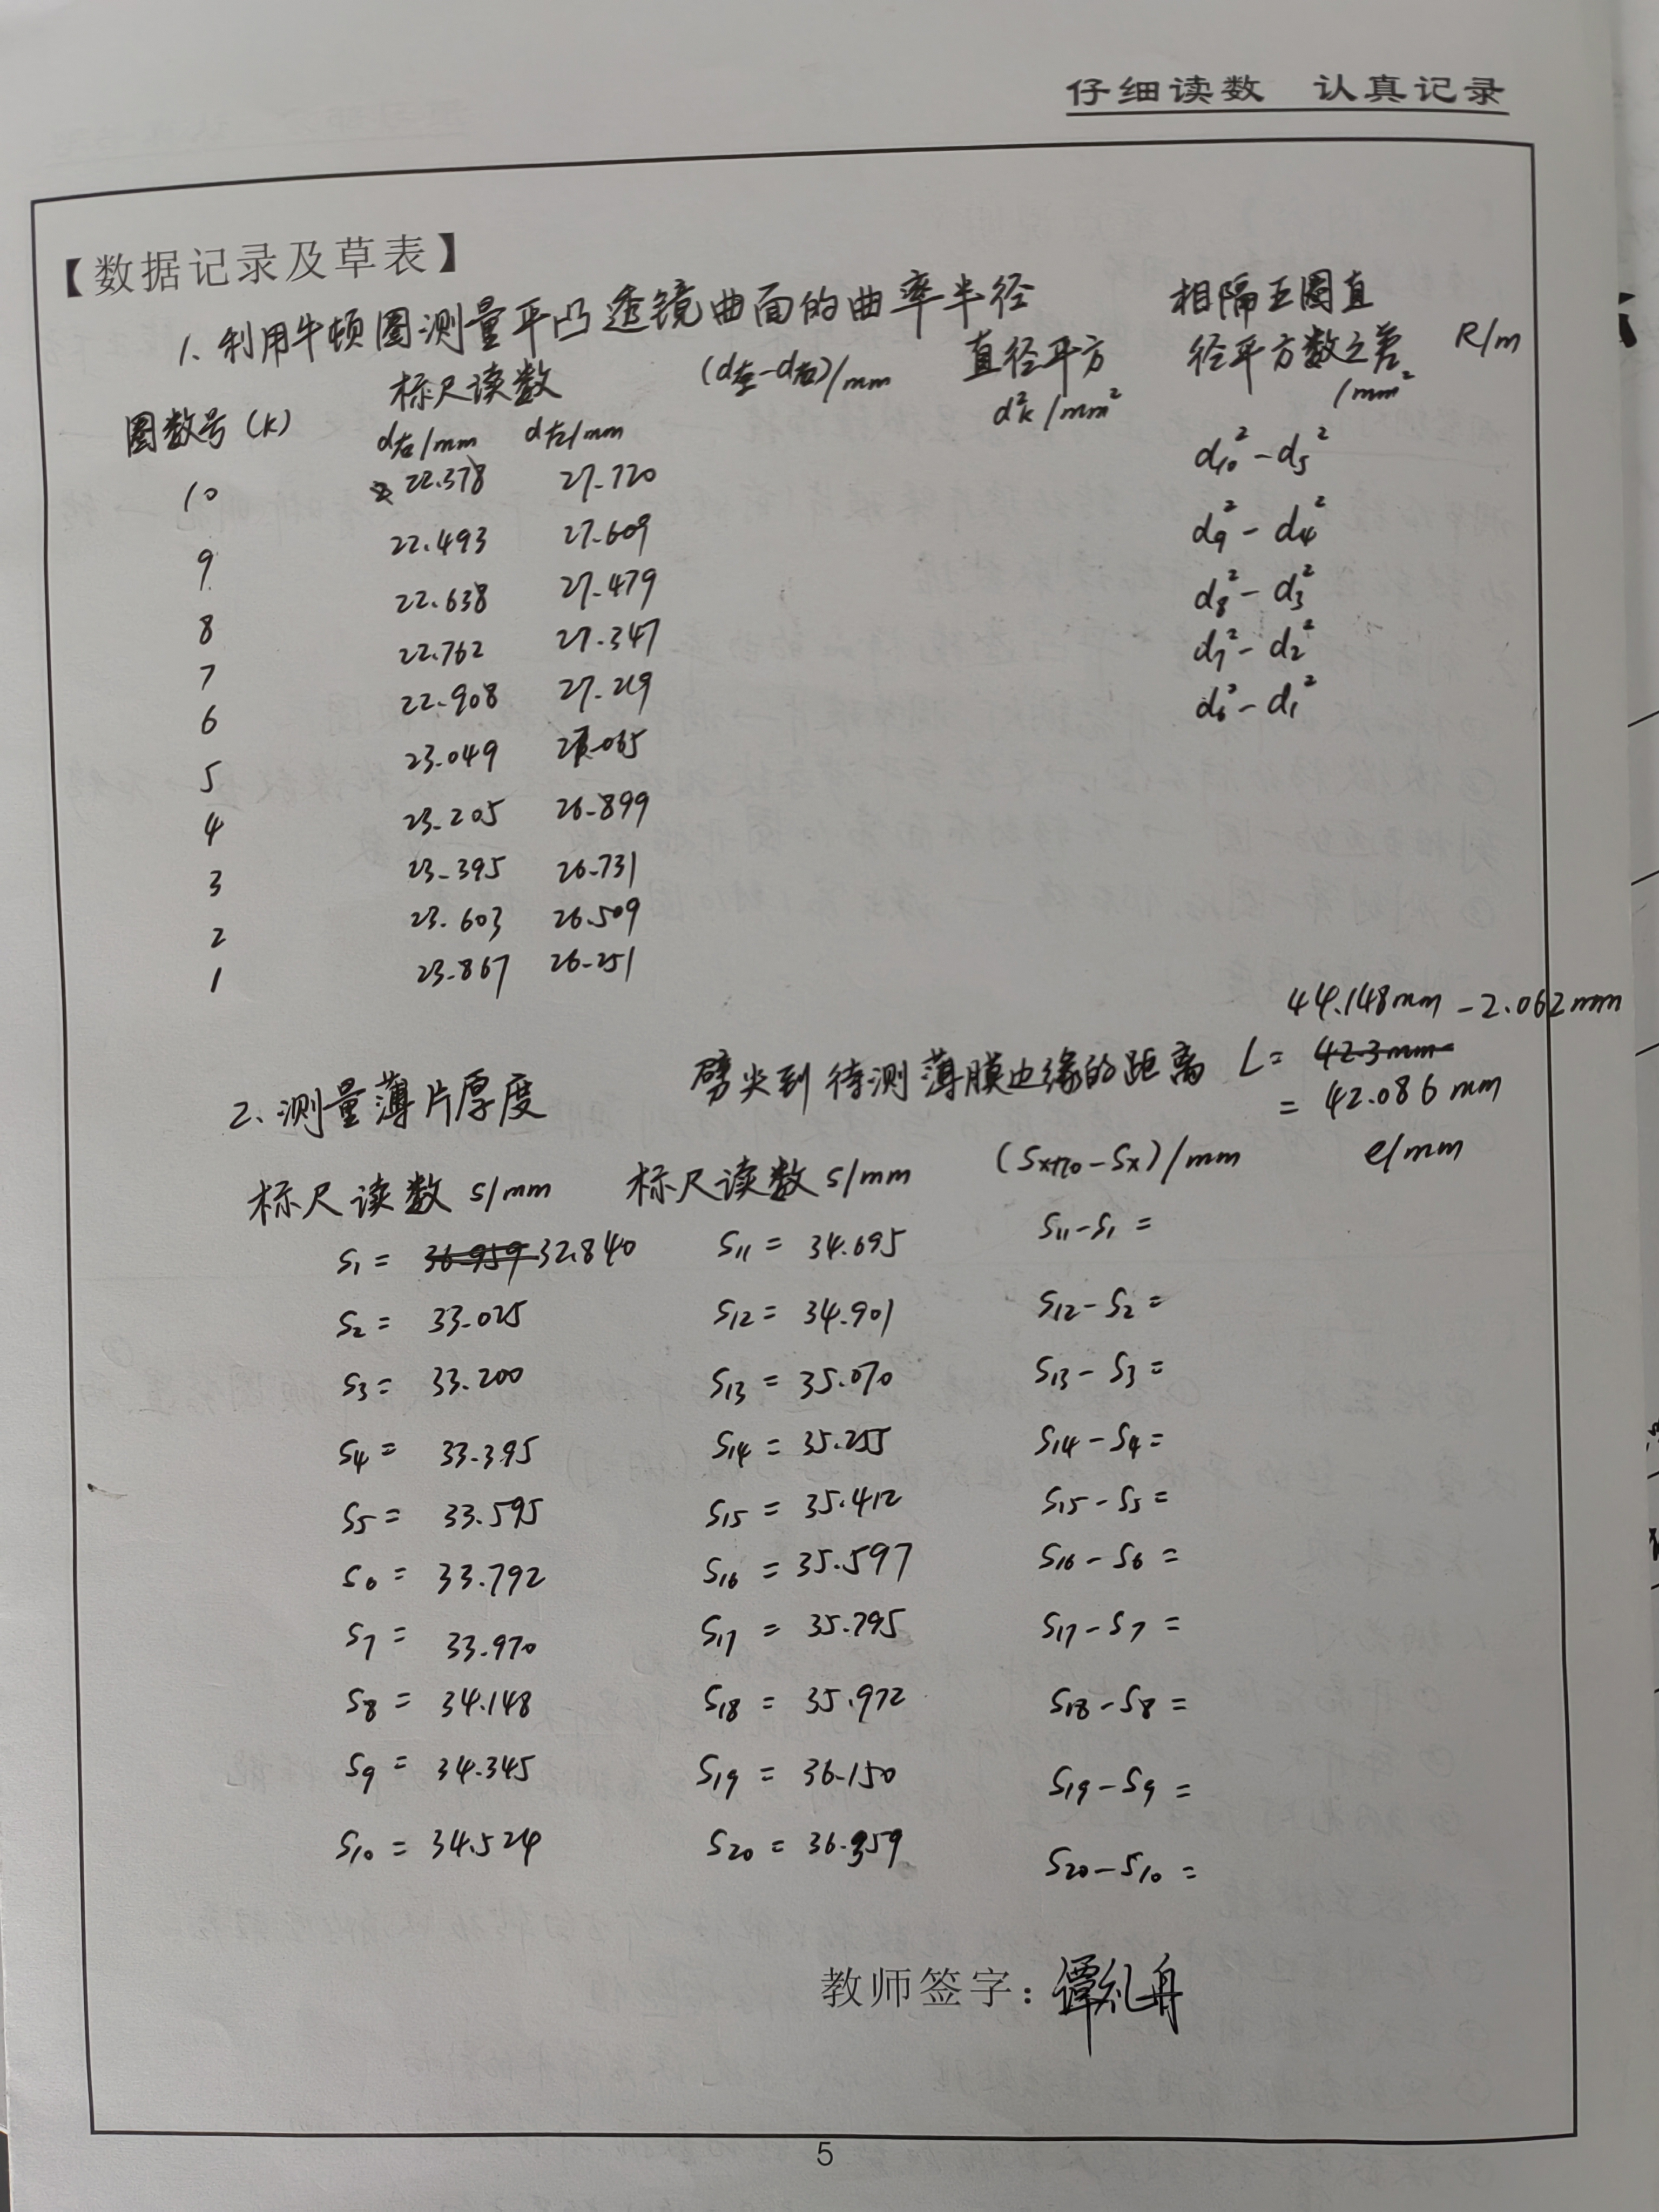 仔细读数 认真记录
【数据记录及草表】
1、利用牛顿圈测量平凸透镜曲面的曲率半径
圈数号(k) 标尺读数 (d左-d右)/mm 直径平方 d²k/mm² 相隔五圈直径平方数之差/mm² R/m
d右/mm d左/mm
10 22.378 27.720 d10²-d5²
9 22.493 27.609 d9²-d4²
8 22.638 27.479 d8²-d3²
7 22.762 27.347 d7²-d2²
6 22.908 27.219 d6²-d1²
5 23.049 27.065
4 23.205 26.899
3 23.395 26.731
2 23.603 26.509
1 23.867 26.251
44.148mm-2.062mm
2、测量薄片厚度 劈尖到待测薄膜边缘的距离 L= 42.3mm
= 42.086mm
标尺读数 s/mm 标尺读数 s/mm (Sx+10-Sx)/mm e/mm
S1= 36.959 32.840 S11= 34.695 S11-S1=
S2= 33.025 S12= 34.901 S12-S2=
S3= 33.200 S13= 35.070 S13-S3=
S4= 33.395 S14= 35.255 S14-S4=
S5= 33.595 S15= 35.412 S15-S5=
S6= 33.792 S16= 35.597 S16-S6=
S7= 33.970 S17= 35.795 S17-S7=
S8= 34.148 S18= 35.972 S18-S8=
S9= 34.345 S19= 36.150 S19-S9=
S10= 34.524 S20= 36.359 S20-S10=
教师签字:谭
5